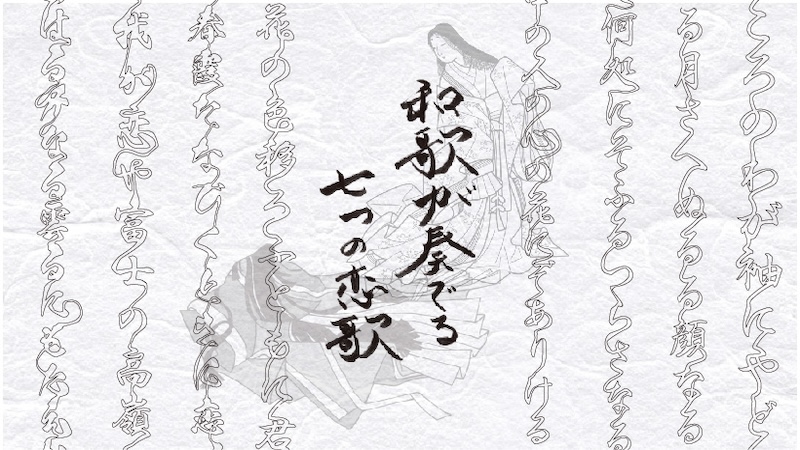 ころのわが袖にやど
る月さへぬるる顔なる
何処にそふるつらさなる
中の人の心の花にぞありける
和歌が奏でる
七つの恋歌
花の色移ろふとともに君
春霞たなびく
我が恋や富士の高嶺